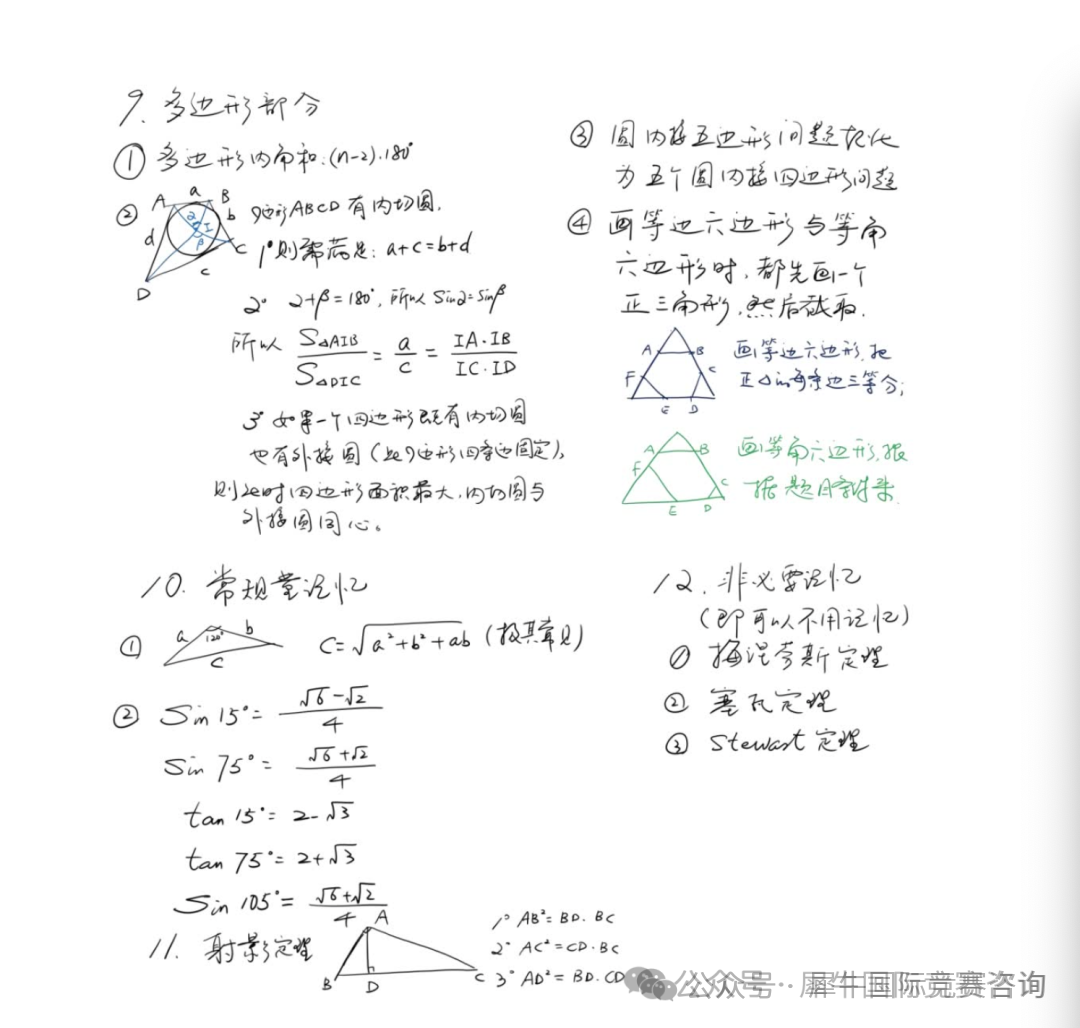 9. 多边形部分
① 多边形内角和:(n-2)·180°
② A a B b C c D d I α β
四边形ABCD有内切圆.
1° 则需满足: a+c=b+d
2° α+β=180°, 所以 sinα=sinβ
所以 S△AIB/S△DIC = a/c = IA·IB/IC·ID
3° 如果一个四边形既有内切圆
也有外接圆(此四边形四条边固定),
则此时四边形面积最大,内切圆与
外接圆同心。
③ 圆内接五边形问题转化
为五个圆内接四边形问题
④ 画等边六边形与等角
六边形时,都先画一个
正三角形,然后截取.
A B C D E F
画等边六边形,把
正△的每条边三等分;
A B C D E F
画等角六边形,根
据题目条件来.
10. 常规量记忆
① a 120° b c
C=√(a²+b²+ab) (极其常见)
② Sin 15°= (√6-√2)/4
Sin 75°= (√6+√2)/4
tan 15°= 2-√3
tan 75°= 2+√3
Sin 105°= (√6+√2)/4
11. 射影定理
A B D C
1° AB²=BD·BC
2° AC²=CD·BC
3° AD²=BD·CD
12. 非必要记忆
(即可以不用记忆)
① 梅涅劳斯定理
② 塞瓦定理
③ Stewart定理
公众号·犀牛国际竞赛咨询